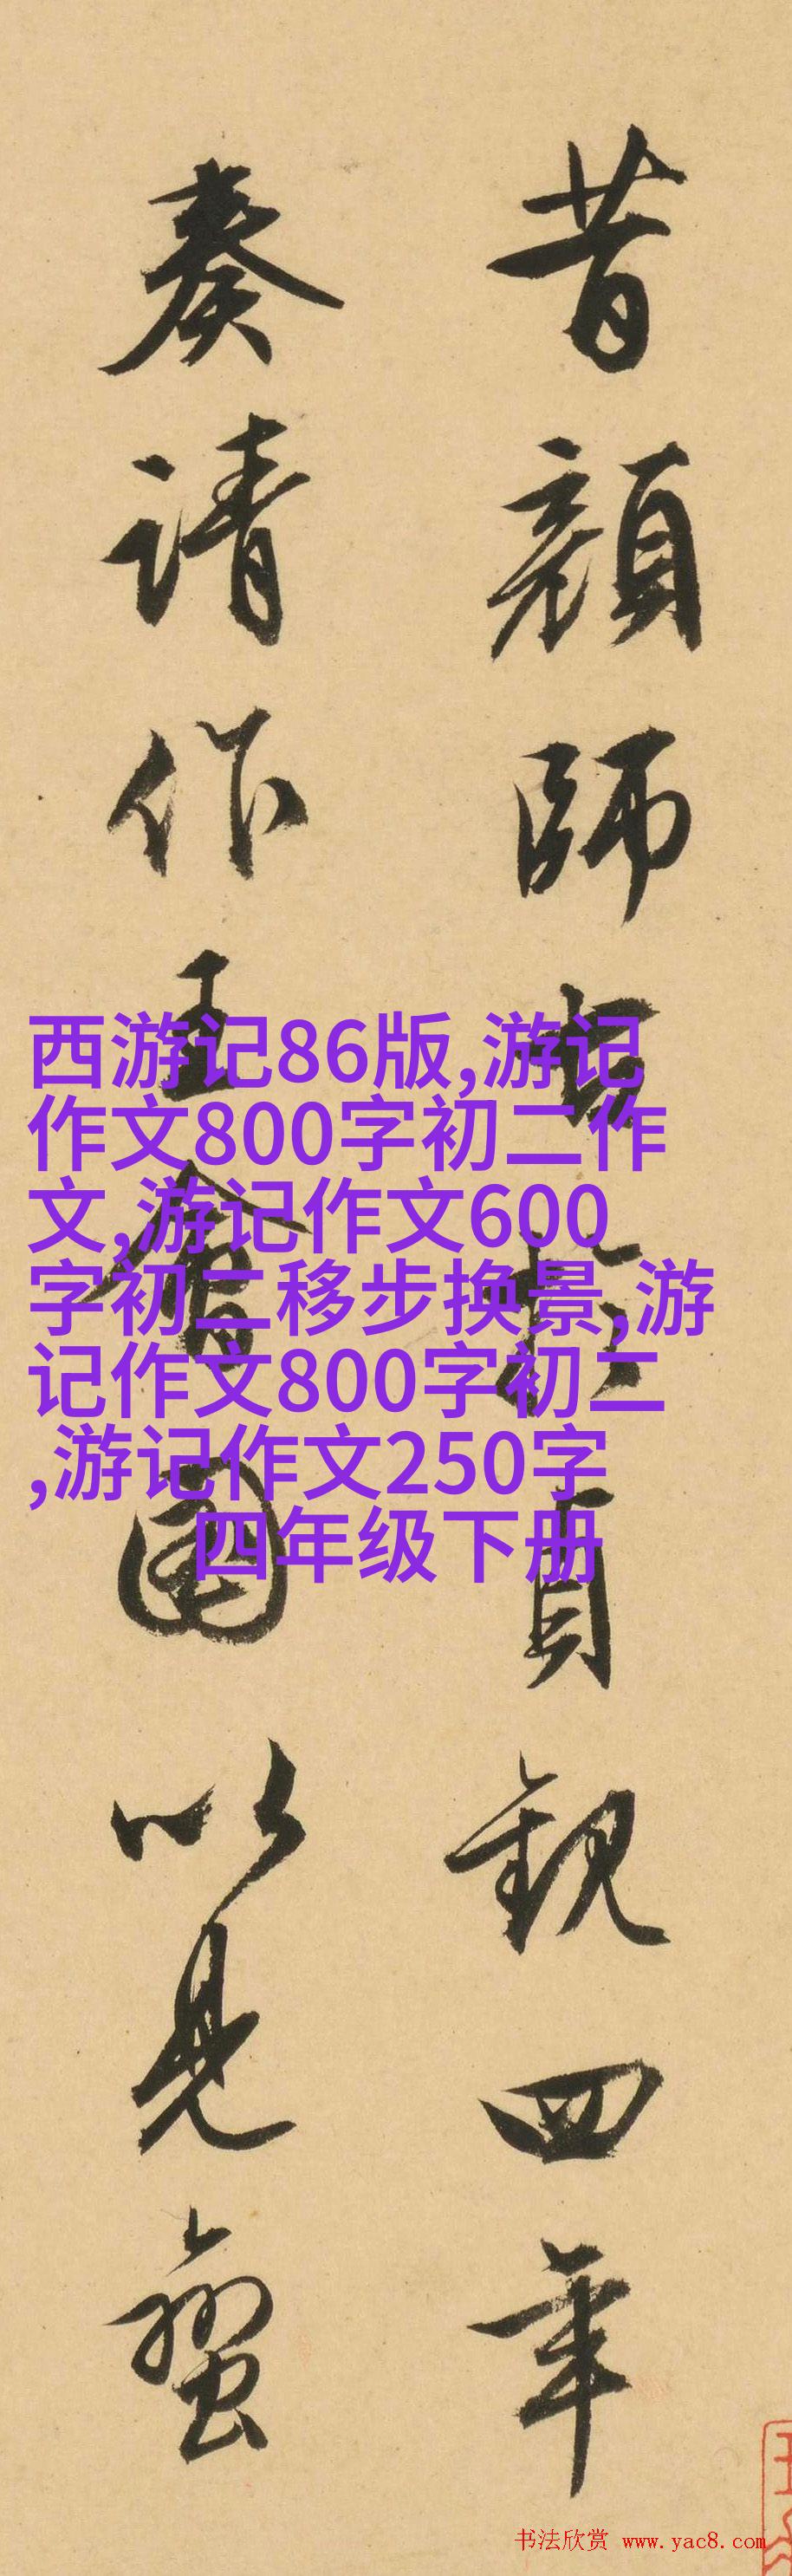 昔顏師古於貞觀四年
奏請作王會圖以見蠻
西游记86版,游记
作文800字初二作
文,游记作文600
字初二移步换景,游
记作文800字初二
,游记作文250字
四年级下册
书法欣赏 www.yac8.com